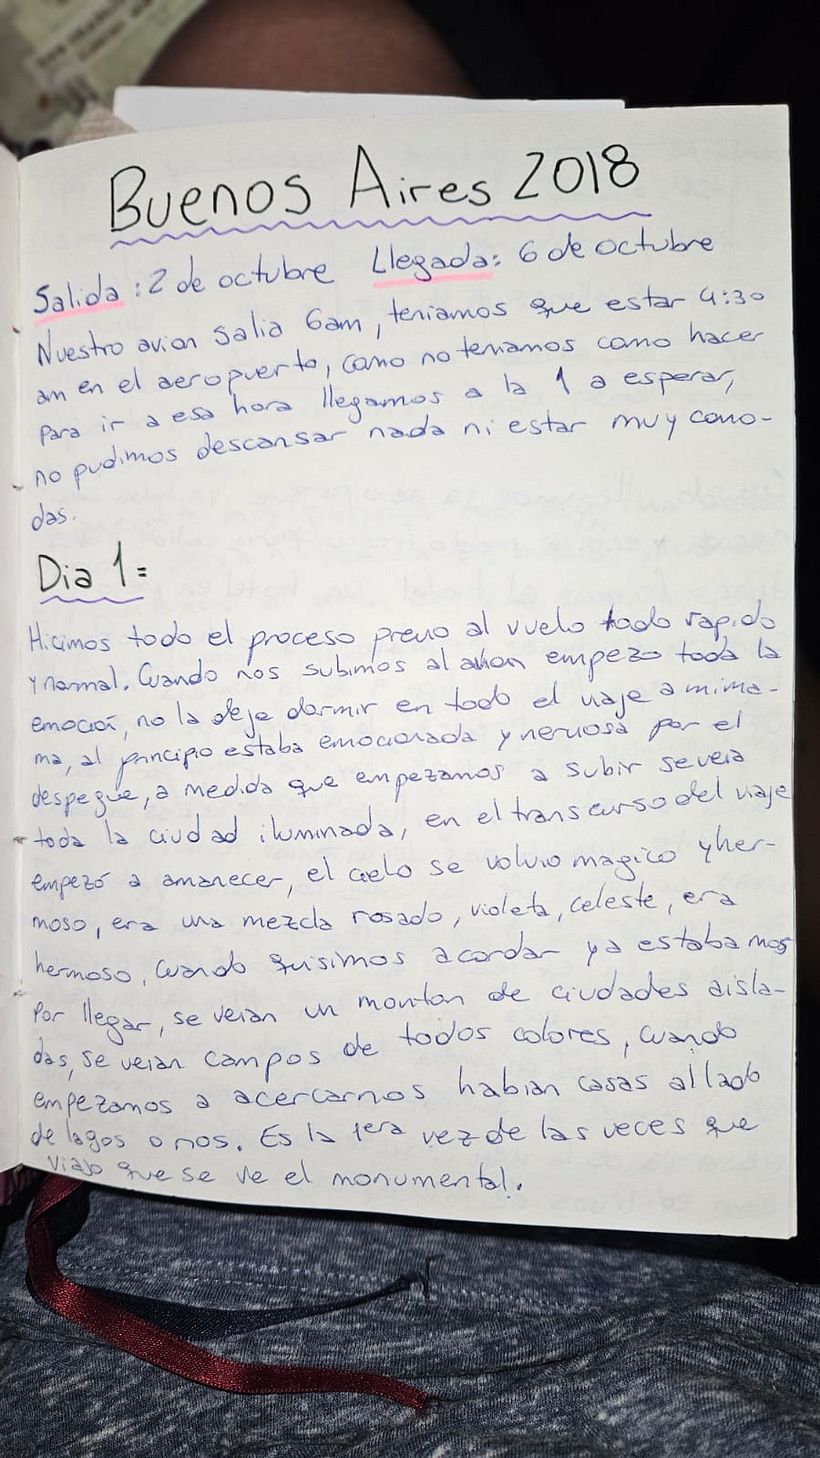 Buenos Aires 2018
Salida: 2 de octubre Llegada: 6 de octubre
Nuestro avion salia 6am, teniamos que estar 4:30
am en el aeropuerto, como no teniamos como hacer
para ir a esa hora llegamos a la 1 a esperar,
no pudimos descansar nada ni estar muy como-
das.
Dia 1=
Hicimos todo el proceso previo al vuelo todo rapido
y normal. Cuando nos subimos al avion empezo toda la
emoción, no la deje dormir en todo el viaje a mi ma-
ma, al principio estaba emocionada y nerviosa por el
despegue, a medida que empezamos a subir se veia
toda la ciudad iluminada, en el transcurso del viaje
empezó a amanecer, el cielo se volvio magico y her-
moso, era una mezcla rosado, violeta, celeste, era
hermoso, cuando quisimos acordar ya estabamos
por llegar, se veian un monton de ciudades aisla-
das, se veian campos de todos colores, cuando
empezamos a acercarnos habian casas al lado
de lagos o rios. Es la 1era vez de las veces que
viajo que se ve el monumental.